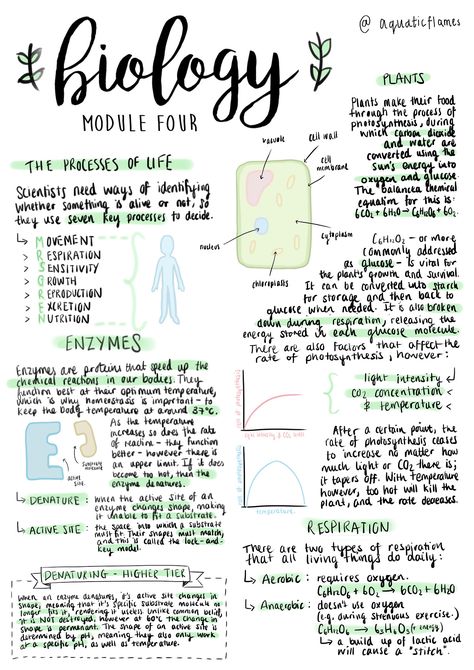 @ aquaticflames
biology
MODULE FOUR
THE PROCESSES OF LIFE
Scientists need ways of identifying
whether something is alive or not, so
they use seven key processes to decide.
↳ MOVEMENT
> RESPIRATION
> SENSITIVITY
> GROWTH
> REPRODUCTION
> EXCRETION
↳ NUTRITION
ENZYMES
Enzymes are proteins that speed up the
chemical reactions in our bodies. They
function best at their optimum temperature,
which is why homeostasis is important - to
keep the body temperature at around 37°C.
As the temperature
increases so does the rate
of reaction - they function
better - however there is
an upper limit. If it does
become too hot, then the
enzyme denatures.
active
site
substrate
molecule
↳ DENATURE : when the active site of an
enzyme changes shape, making
it unable to fit a substrate.
↳ ACTIVE SITE : the space into which a substrate
must fit. Their shapes must match,
and this is called the lock-and-
key model.
DENATURING - HIGHER TIER
When an enzyme denatures, it's active site changes in
shape, meaning that it's specific substrate molecule no
longer fits it, rendering it useless. Unlike common belief,
it is NOT destroyed, however at 60°C the change in
shape is permanent. The shape of an active site is
determined by pH, meaning they also only work
at a specific pH, as well as temperature.
vacuole
cell wall
cell
membrane
cytoplasm
nucleus
chloroplasts
PLANTS
Plants make their food
through the process of
photosynthesis, during
which carbon dioxide
and water are
converted using the
sun's energy into
oxygen and glucose.
The balanced chemical
equation for this is:
6CO₂ + 6H₂O → C₆H₁₂O₆ + 6O₂
C₆H₁₂O₂ - or more
commonly addressed
as glucose - is vital for
the plants growth and survival.
It can be converted into starch
for storage and then back to
glucose when needed. It is also broken
down during respiration, releasing the
energy stored in each glucose molecule.
There are also factors that affect the
rate of photosynthesis, however:
light intensity
CO₂ concentration <
& temperature <
light intensity & CO₂ levels
temperature
After a certain point, the
rate of photosynthesis ceases
to increase no matter how
much light or CO₂ there is;
it tapers off. With temperature
however, too hot will kill the
plant, and the rate decreases.
RESPIRATION
There are two types of respiration
that all living things do daily:
↳ Aerobic : requires oxygen.
C₆H₁₂O₆ + 6O₂ → 6CO₂ + 6H₂O
↳ Anaerobic : doesn't use oxygen
(e.g. during strenuous exercise.)
C₆H₁₂O₆ → C₃H₆O₃ (+ energy)
↳ a build up of lactic acid
will cause a "stitch".